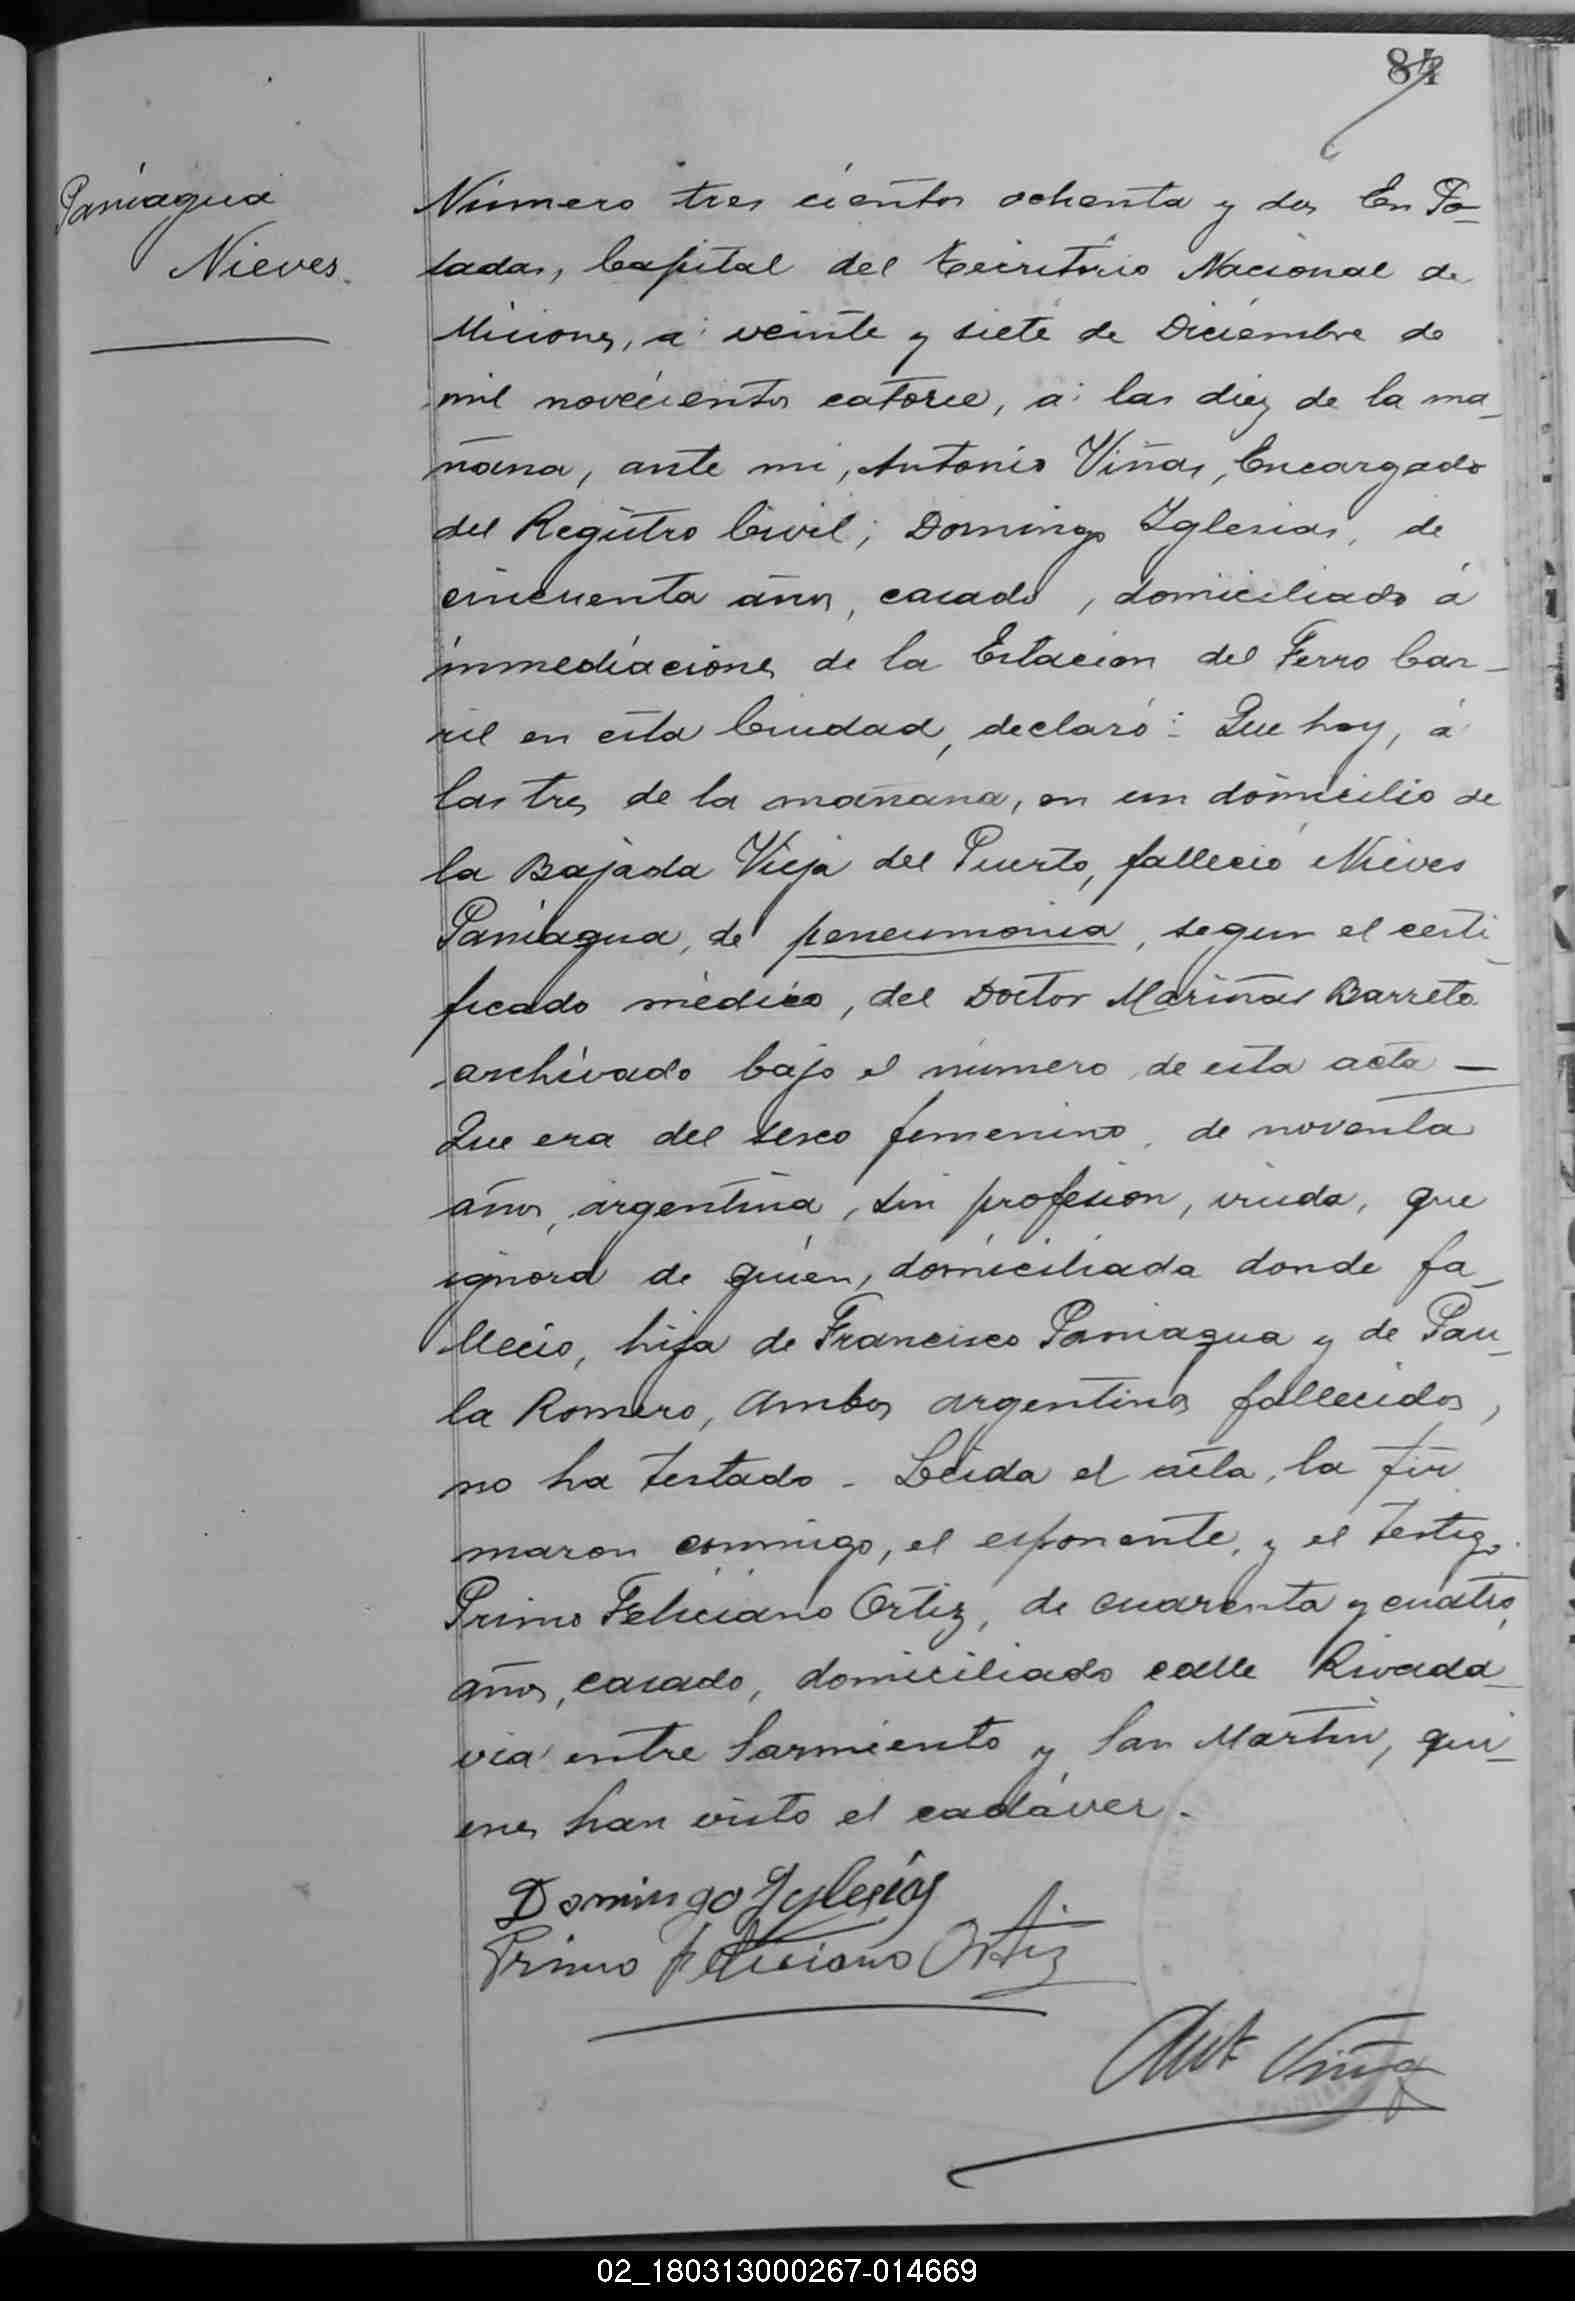 84
Paniagua
Nieves.
Número tres cientos ochenta y dos En Po-
sadas, Capital del Territorio Nacional de
Misiones, á veinte y siete de Diciembre de
mil novecientos catorce, á las diez de la ma-
ñana, ante mi, Antonio Viñas, Encargado
del Registro Civil; Domingo Yglesias, de
cincuenta años, casado, domiciliado á
inmediaciones de la Estacion del Ferro Car-
ril en esta Ciudad, declaró: Que hoy, á
las tres de la mañana, en un domicilio de
la Bajada Vieja del Puerto, falleció Nieves
Paniagua, de peneumonia, segun el certi-
ficado médico, del Doctor Mariñas Barreto
archivado bajo el número de esta acta —
Que era del sexo femenino, de noventa
años, argentina, sin profesion, viuda, que
ignora de quien, domiciliada donde fa-
lleció, hija de Francisco Paniagua y de Pau-
la Romero, ambos argentinos fallecidos,
no ha testado - Leida el acta, la fir
maron conmigo, el esponente, y el testigo.
Primo Feliciano Ortiz, de cuarenta y cuatro
años, casado, domiciliado calle Rivada-
via entre Sarmiento y San Martin, qui-
enes han visto el cadáver.
Domingo Yglesias
Primo Feliciano Ortiz
Ant Viñas
02_180313000267-014669